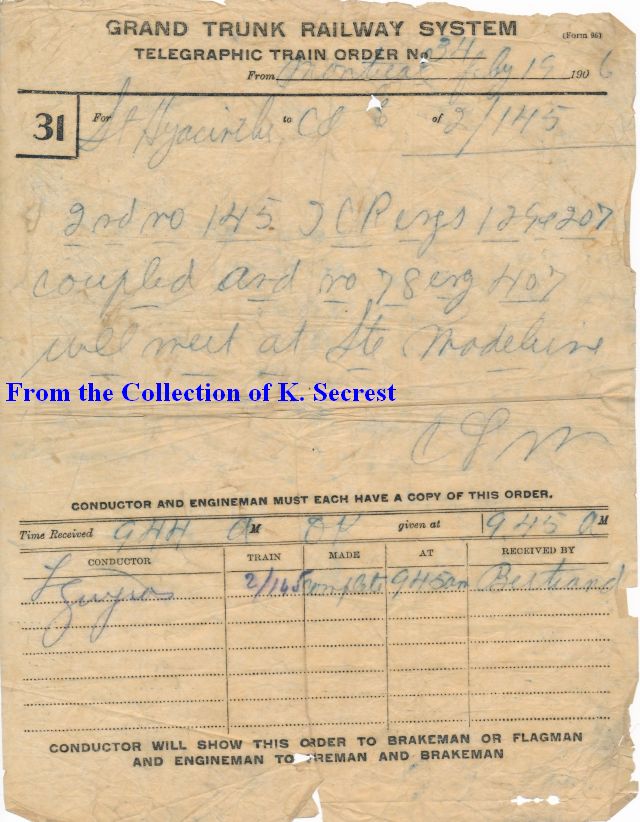 GRAND TRUNK RAILWAY SYSTEM
(Form 96)
TELEGRAPHIC TRAIN ORDER No 34
From Montreal Feby 19 1906
31 For St Hyacinthe to C & E of 2/145
2nd no 145 I C R engs 129 & 207
coupled and no 78 eng 407
will meet at Ste Madeleine
From the Collection of K. Secrest
CONDUCTOR AND ENGINEMAN MUST EACH HAVE A COPY OF THIS ORDER.
Time Received 944 a M OK given at 945 a M
CONDUCTOR TRAIN MADE AT RECEIVED BY
2/145 complete 945 am Bertrand
CONDUCTOR WILL SHOW THIS ORDER TO BRAKEMAN OR FLAGMAN
AND ENGINEMAN TO FIREMAN AND BRAKEMAN